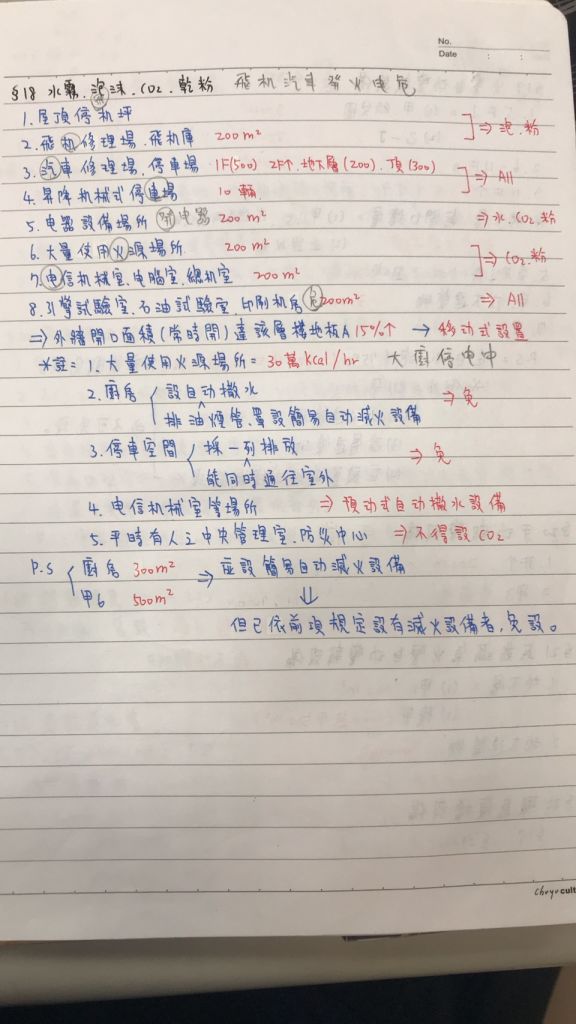 No.
Date : :
§18 水霧.泡沫.CO₂.乾粉 飛机汽車發火电危
1.屋頂停机坪
2.飛机修理場.飛机庫 200m² ⇒泡.粉
3.汽車修理場.停車場 1F(500) 2F↑.地下層(200).頂(300)
4.昇降机械式停車場 10輛 ⇒All
5.电器設備場所 200m² ⇒水.CO₂.粉
6.大量使用火源場所. 200m²
7.电信机械室.电腦室.總机室 200m² ⇒CO₂.粉
8.引擎試驗室.石油試驗室.印刷机房 200m² ⇒All
⇒外牆開口面積(常時開)達該層樓地板A 15%↑ →移動式設置
*註= 1.大量使用火源場所=30萬kcal/hr 大廚信电中
2.廚房 設自動撒水
排油煙管、罩設簡易自動滅火設備 ⇒免
3.停車空間 採一列排放
能同時通往室外 ⇒免
4.电信机械室等場所 ⇒預動式自動撒水設備
5.平時有人之中央管理室.防災中心 ⇒不得設CO₂
P.S 廚房 300m² ⇒应設簡易自動滅火設備
甲6 500m²
⇓
但已依前項規定設有滅火設備者,免設。